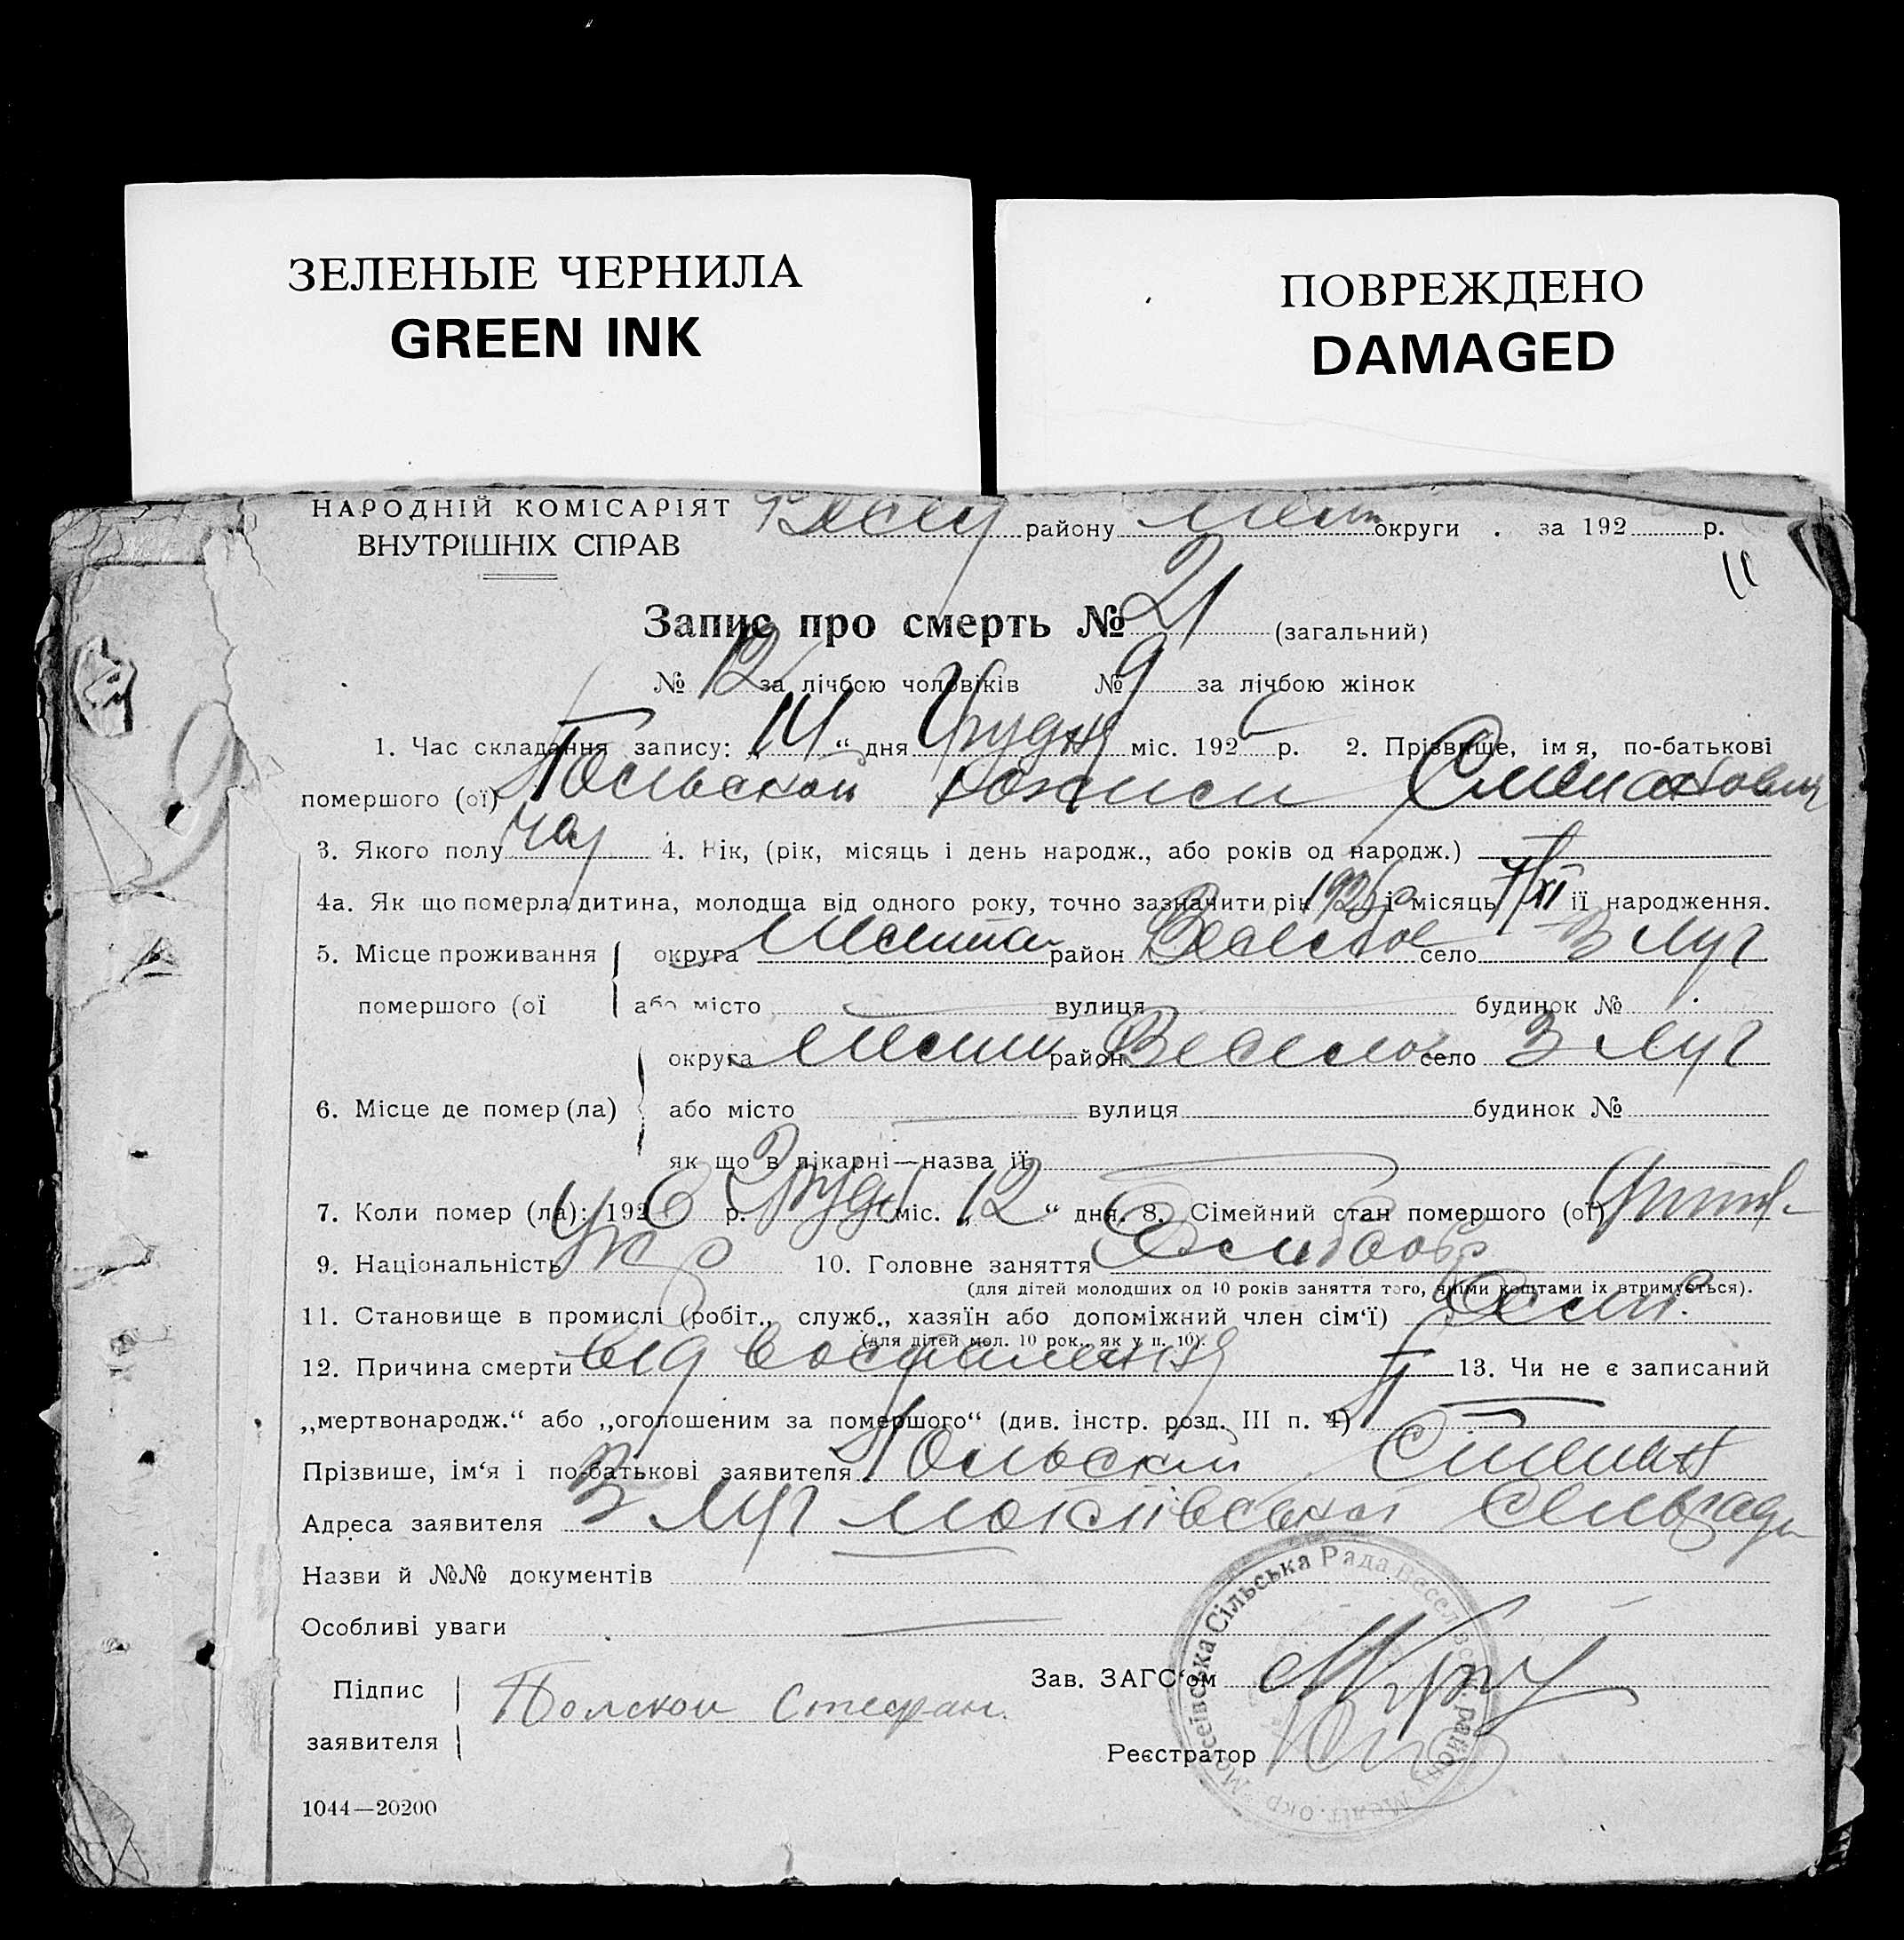 ЗЕЛЕНЫЕ ЧЕРНИЛА
GREEN INK
ПОВРЕЖДЕНО
DAMAGED
НАРОДНІЙ КОМІСАРІЯТ
ВНУТРІШНІХ СПРАВ
району округи . за 192 р.
Запис про смерть № 21 (загальний)
№ 12 за лічбою чоловіків № 9 за лічбою жінок
1. Час складання запису: „14“ дня Грудня міс. 192 р. 2. Прізвище, імя, по-батькові
помершого (ої) Польской
3. Якого полу 4. Рік, (рік, місяць і день народж., або років од народж.)
4а. Як що померла дитина, молодша від одного року, точно зазначити рік 1926 і місяць 7/XI її народження.
5. Місце проживання округа район Веселое село З Луг
помершого (ої або місто вулиця будинок №
округа район Весело село З Луг
6. Місце де помер (ла) або місто вулиця будинок №
як що в лікарні—назва її
7. Коли помер (ла): 1926 р. Грудн міс. „12“ дня. 8. Сімейний стан помершого (ої)
9. Національність Укр 10. Головне заняття
(для дітей молодших од 10 років заняття того, якіми коштами іх втримується).
11. Становище в промислі (робіт., служб., хазяїн або допоміжний член сім'ї)
(для дітей мол. 10 рок., як у п. 10).
12. Причина смерти від воспаления 13. Чи не є записаний
„мертвонародж.“ або „оголошеним за помершого“ (див. інстр. розд. III п. 4)
Прізвише, ім'я і по-батькові заявителя Польский Степан
Адреса заявителя З Луг сельради
Назви й №№ документів
Особливі уваги
Підпис заявителя Полской Стефан.
Зав. ЗАГС'ом
Реєстратор
Мосіївська Сільська Рада Веселівськ. району Меліт. окр.
1044—20200